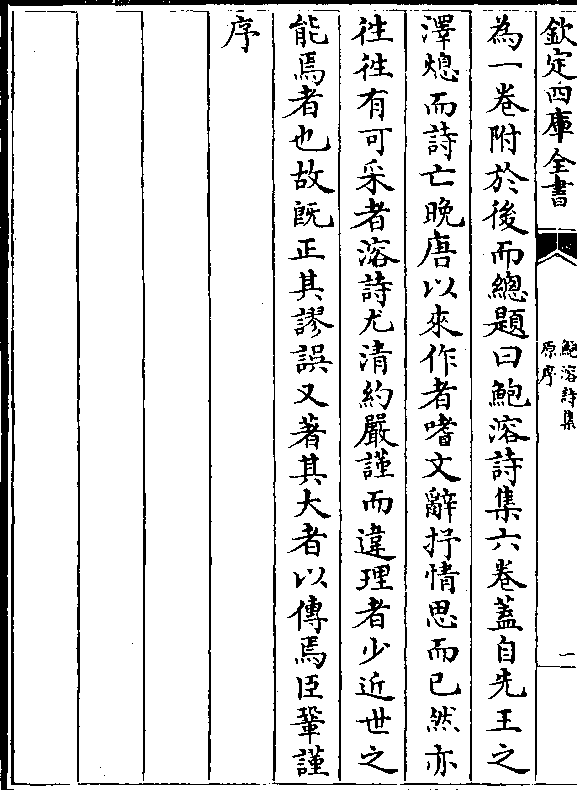 欽定四庫全書
鮑溶詩集
原序
一
為一卷附於後而總題曰鮑溶詩集六卷蓋自先王之
澤熄而詩亡晚唐以來作者嗜文辭抒情思而已然亦
徃徃有可采者溶詩尤清約嚴謹而違理者少近世之
能焉者也故旣正其謬誤又著其大者以傳焉臣鞏謹
序